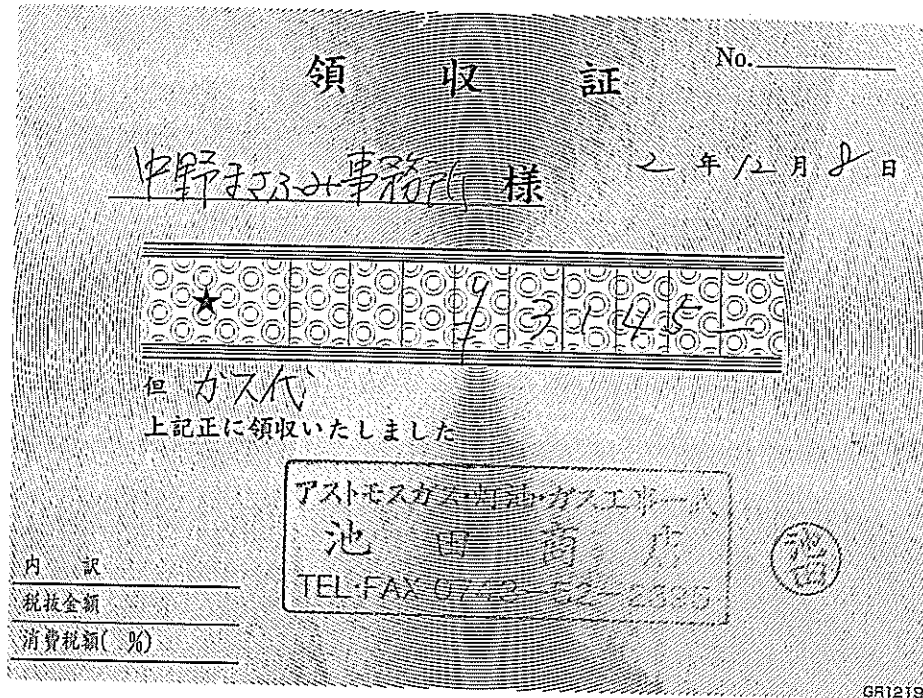 領収証
No.
中野まさふみ事務所 様
2年12月8日
★ ¥3145-
但 ガス代
上記正に領収いたしました
アストモスガス・灯油・ガス工事一式
池田商店
TEL・FAX
池田
内訳
税抜金額
消費税額( %)
GR121S